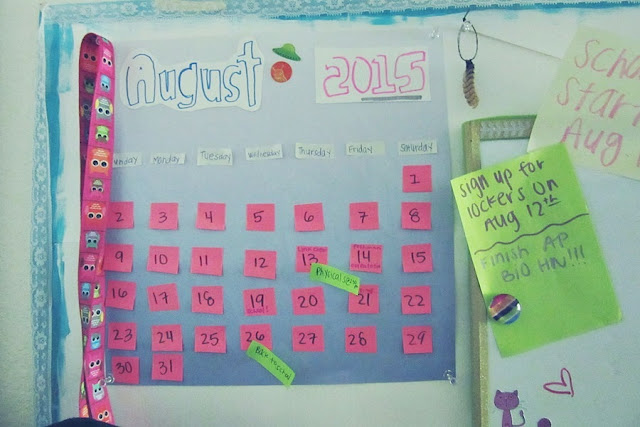 August
2015
Sunday Monday Tuesday Wednesday Thursday Friday Saturday
1
2 3 4 5 6 7 8
9 10 11 12 13 14 15
Physical 3pm
16 17 18 19 20 21 22
23 24 25 26 27 28 29
Back to school
30 31
Start
Aug
sign up for
lockers on
Aug 12th
Finish AP
BIO HW!!!